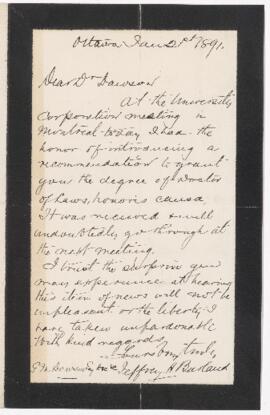 Ottawa Jan 21st 1891.
Dear Dr Dawson
At the University
Corporation meeting in
Montreal today I had the
honor of introducing a
recommendation to grant
you the degree of Doctor
of Laws, honoris causa.
It was received & will
undoubtedly go through at
the next meeting.
I trust the surprise you
may experience at hearing
this item of news will not be
unpleasant or the liberty I
have taken unpardonable
With kind regards,
Yours very truly
Jeffrey H Burland